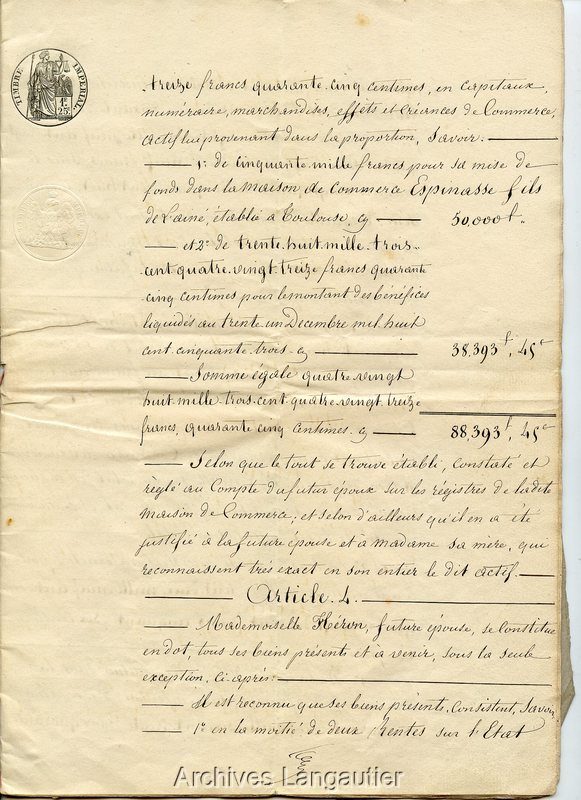 TIMBRE IMPÉRIAL
1F
25C
treize francs quarante cinq centimes, en capitaux,
numéraire, marchandises, effets et créances de Commerce,
actif lui provenant dans la proportion, Savoir.
1º de Cinquante mille francs pour sa mise de
fonds dans la Maison de Commerce Espinasse fils
de l'ainé, établie à Toulouse, cy 50,000f "
et 2º de trente huit mille trois
cent quatre vingt treize francs quarante
cinq centimes pour le montant des bénéfices
liquidés au trente un Décembre mil huit
cent cinquante trois cy 38,393f, 45c
Somme égale quatre vingt
huit mille trois cent quatre vingt treize
francs, quarante cinq Centimes. cy 88,393f, 45c
Selon que le tout se trouve établi, constaté et
règlé au Compte du futur époux sur les régistres de ladite
Maison de Commerce; et selon d'ailleurs qu'il en a été
justifié à la future épouse et à madame sa mère, qui
reconnaissent trés exact en son entier le dit actif.
Article 4.
Mademoiselle Héron, future épouse, se constitue
en dot, tous ses biens présents et à venir, sous la seule
exception, ci-après:
Il est reconnu que ses biens présents, Consistent, Savoir
1º en la moitié de deux Rentes sur l'Etat
Archives Langautier